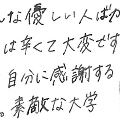 な優しい人ばか
は辛くて大変です
自分に感謝する
。素敵な大学